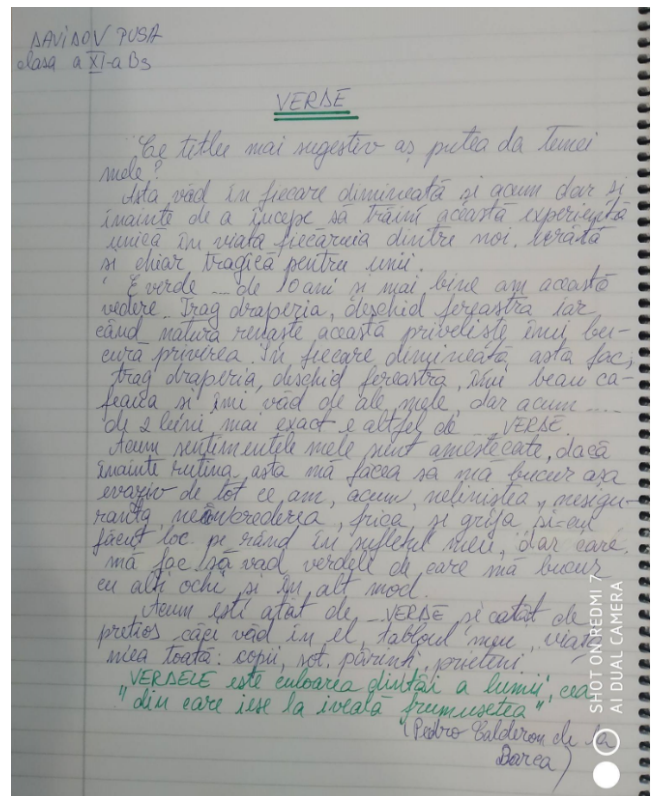 DAVIDOV PUSA
clasa a XI-a Bs
VERDE
Ce titlu mai sugestiv aș putea da temei
mele?
Asta văd în fiecare dimineață și acum dar și
înainte de a începe să trăim această experiență
unică în viața fiecăruia dintre noi, urâtă
și chiar tragică pentru unii.
E verde ... de 10 ani și mai bine am această
vedere. Trag draperia, deschid fereastra iar
când natura renaște această priveliște îmi bu-
cură privirea. În fiecare dimineață asta fac,
trag draperia, deschid fereastra, îmi beau ca-
feaua și îmi văd de ale mele, dar acum .....
de 2 luni mai exact e altfel de ... VERDE
Acum sentimentele mele sunt amestecate, dacă
înainte rutina asta mă făcea să mă bucur așa
evaziv de tot ce am, acum, neliniștea, nesigu-
ranța, neîncrederea, frica și grija și-au
făcut loc pe rând în sufletul meu, dar care
mă fac să văd verdele de care mă bucur
cu alți ochi și în alt mod.
Acum ești atât de ... VERDE și atât de
prețios căci văd în el, tabloul meu, viața
mea toată: copii, soț, părinți, prieteni
"VERDELE este culoarea dintâi a lumii, cea
din care iese la iveală frumusețea"
(Pedro Calderon de la
Barca)
SHOT ON REDMI 7
AI DUAL CAMERA